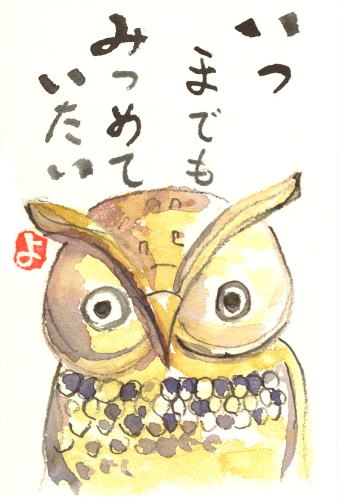 いつ
までも
みつめて
いたい
よ